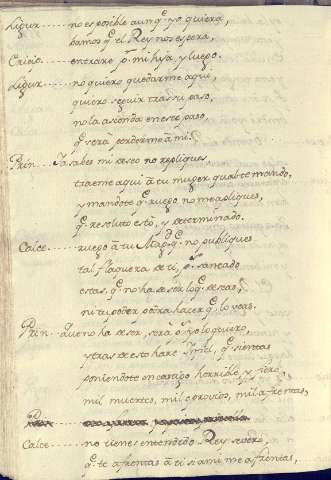 Ligur..... no es posible aunq̃ yo quiera,
bamos q̃ el Rey nos espera,
Crisio..... entrare p.r mi hija, y luego.
Ligur..... no quiero quedarme aqui,
quiero seguir tras su paso,
no la asconda en este paso,
q̃ sera perderme à mi.
Prin..... Ya sabes mi deseo no repliques
traeme aqui à tu muger qual te mando,
y mandote q̃ ruego no me apliques,
q̃ resoluto estò, y determinado.
Calce..... ruego à tu Mag.d q̃ no publiques
tal flaqueza de ti, p.r saneado
estas, q̃ no ha de ser lo q̃ deseas,
ni tu poder podra hacer q̃ lo veas.
Prin..... Que no ha de ser, serà p.r q̃ yo lo quiero,
y tras de esto harè q̃ sientas
poniendote en castigo horrible, y fiero,
mil muertes, mil oprovios, mil afrentas,
Calce..... no tienes entendido Rey severo,
q̃ te afrentas à ti si a mi me afrentas,